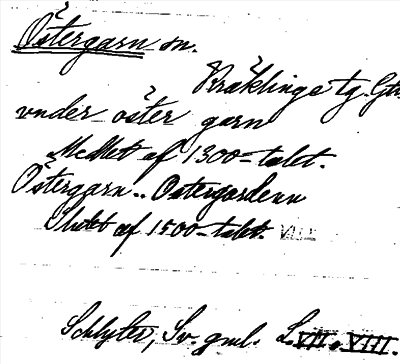 Östergarn sn.
Kräklinge tg. Gtl.
vnder öster garn
Medlet af 1300-talet.
Östergarn.. Ostergardenn
Slutet af 1500-talet. VIII
Schlyter, Sv. gml. L. VII, VIII.